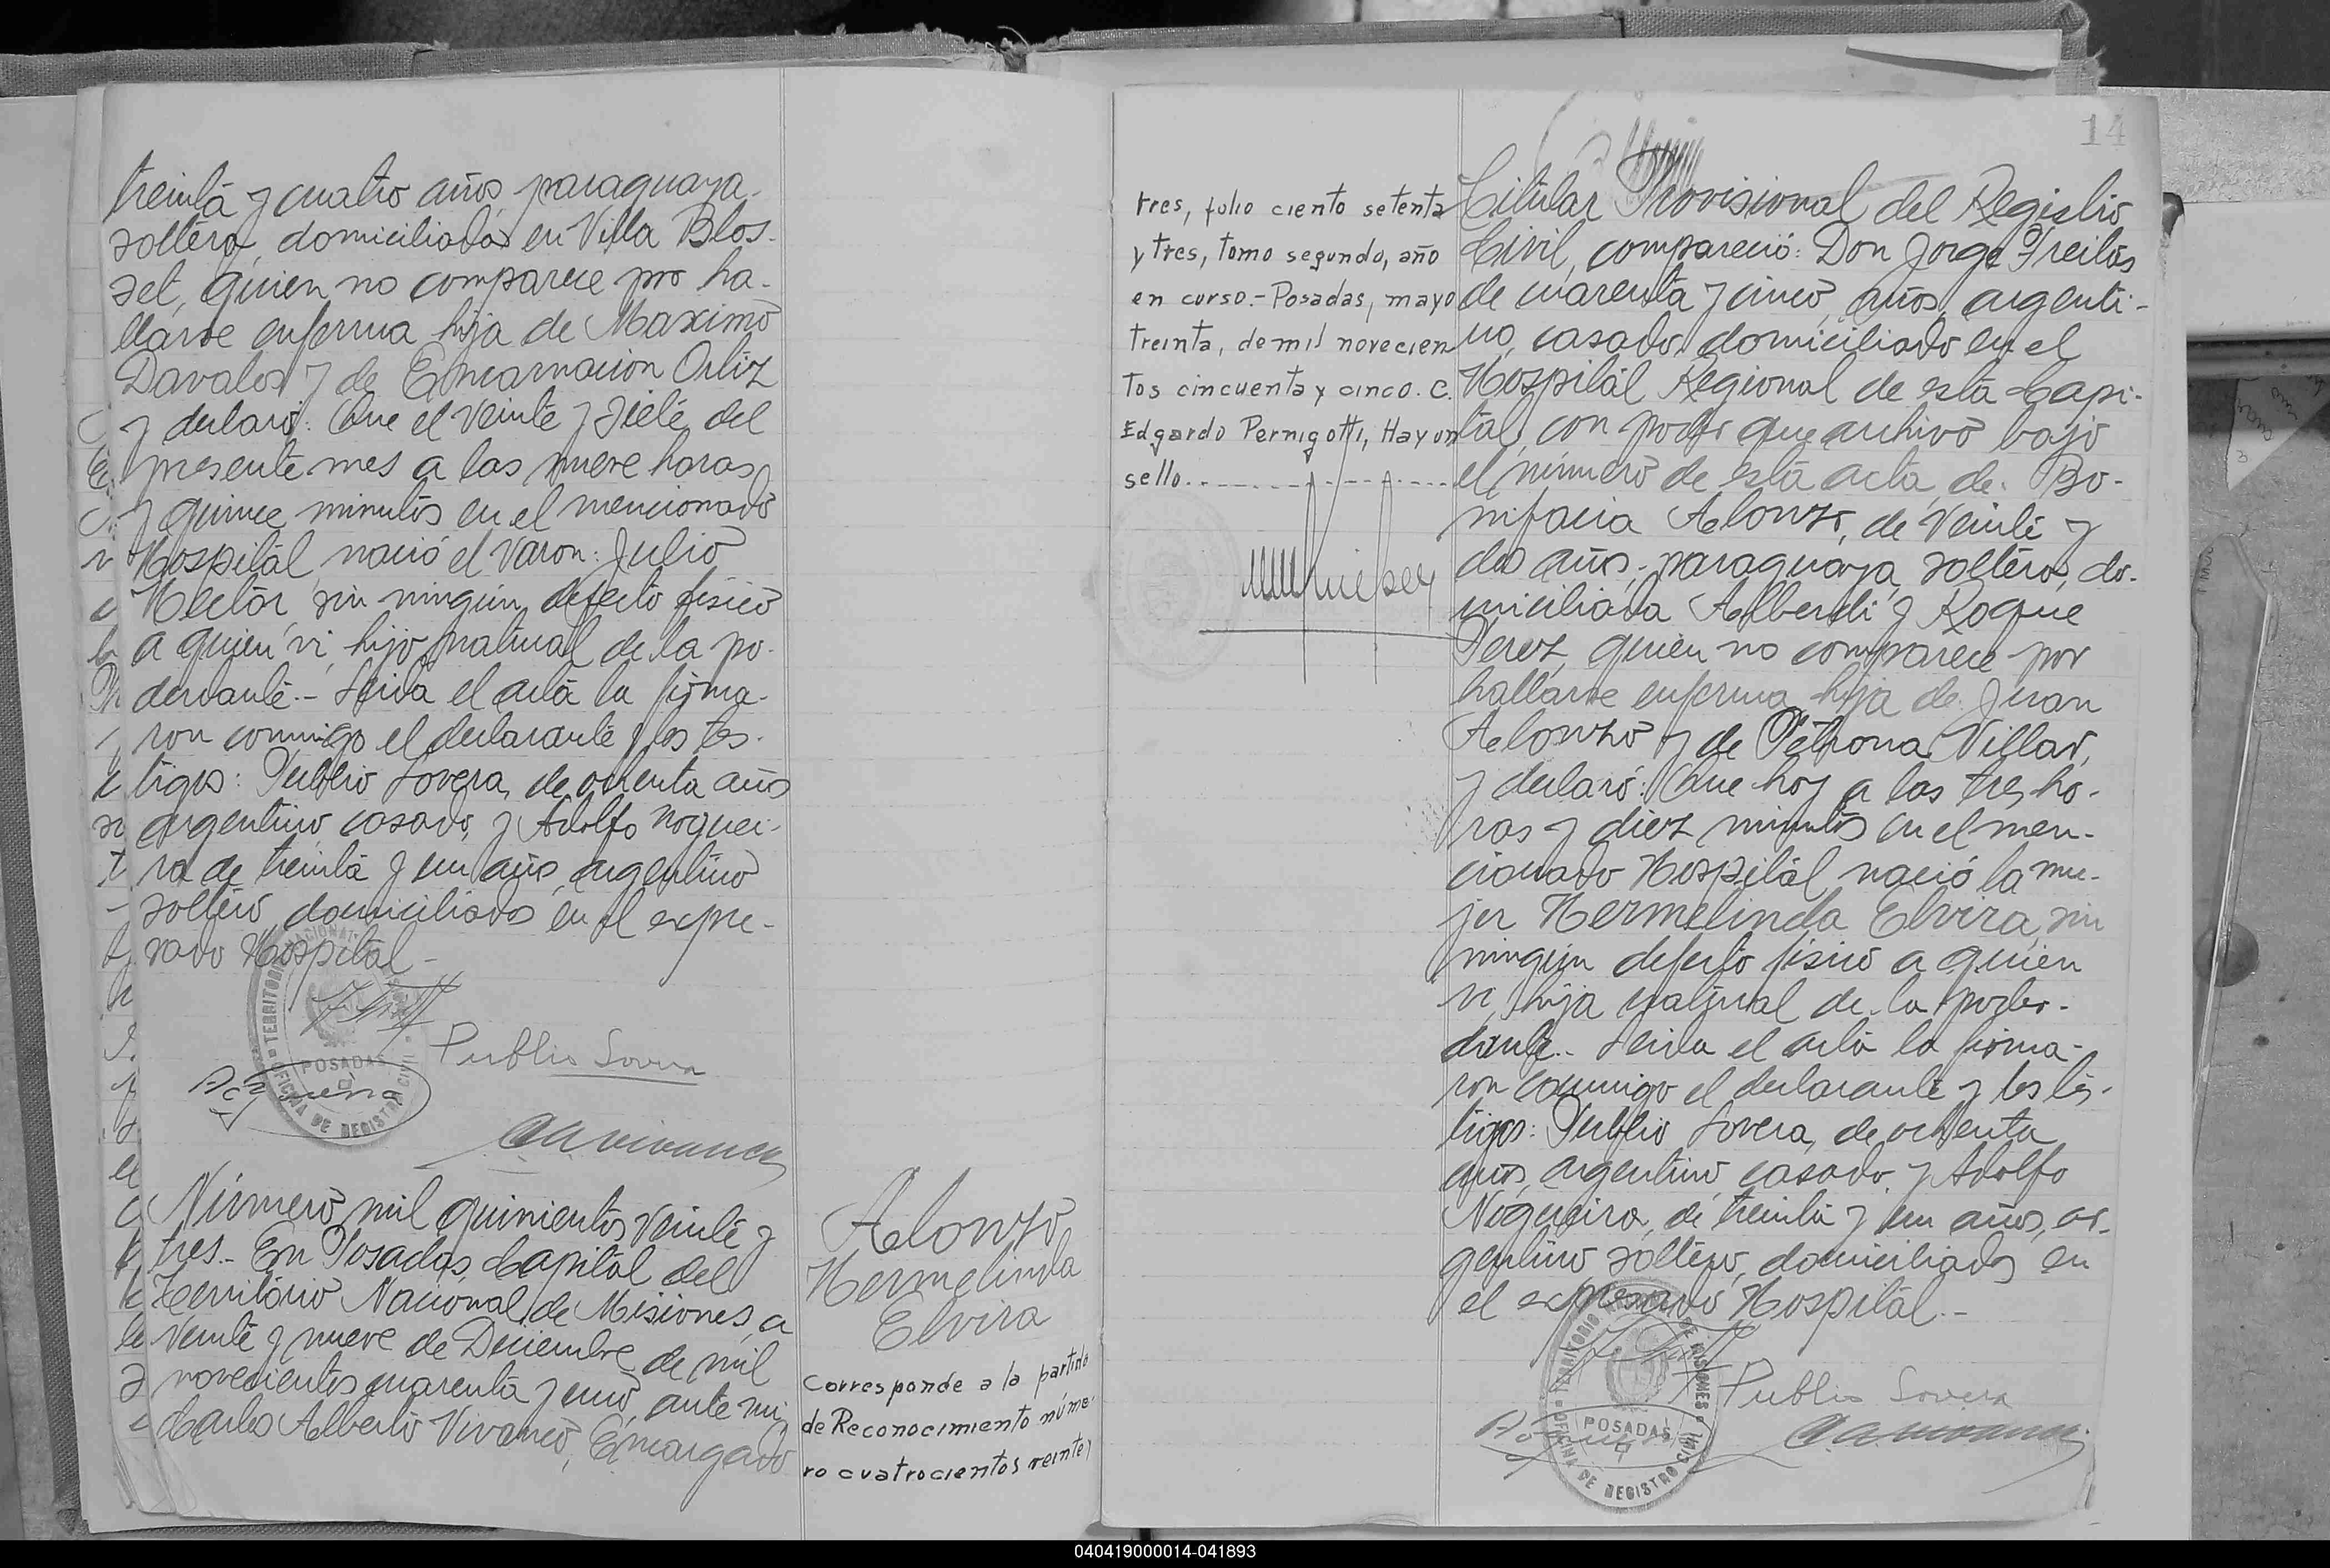 treinta y cuatro años, paraguaya,
soltera, domiciliada en Villa Blos-
set, quien no comparece por ha-
llarse enferma hija de Maximo
Davalos y de Encarnacion Ortiz
y declaró: Que el veinte y siete del
presente mes a las nueve horas
y quince minutos en el mencionado
Hospital nació el varon: Julio
Hector, sin ningún defecto fisico
a quien vi, hijo natural de la po-
derdante.- Leida el acta la firma-
ron conmigo el declarante y los tes-
tigos: Publio Lovera, de ochenta años
argentino, casado, y Adolfo Noguei-
ra de treinta y un años, argentino
soltero, domiciliados en el expre-
sado Hospital.-
TERRITORIO NACIONAL
POSADAS
OFICINA DE REGISTRO CIVIL
Publio Lovera
Número mil quinientos veinte y
tres.- En Posadas, Capital del
Territorio Nacional de Misiones, a
veinte y nueve de Diciembre de mil
novecientos cuarenta y uno, ante mi
Carlos Alberto Vivanco, Encargado
Alonzo
Hermelinda
Elvira
Corresponde a la partida
de Reconocimiento núme-
ro cuatrocientos veinte y
14
tres, folio ciento setenta
y tres, tomo segundo, año
en curso.- Posadas, mayo
treinta, de mil novecien
tos cincuenta y cinco. C.
Edgardo Pernigotti, Hay un
sello.
Titular Provisional del Registro
Civil, compareció: Don Jorge Freitas
de cuarenta y cinco años, argenti-
no, casado, domiciliado en el
Hospital Regional de esta Capi-
tal, con poder que archivo bajo
el número de esta acta, de: Bo-
nifacia Alonzo, de veinte y
dos años, paraguaya, soltera, do-
miciliada Alberdi y Roque
Perez, quien no comparece por
hallarse enferma hija de Juan
Alonzo y de Petrona Villar,
y declaró: Que hoy a las tres ho-
ras y diez minutos en el men-
cionado Hospital nació la mu-
jer Hermelinda Elvira, sin
ningún defecto fisico a quien
vi, hija natural de la poder-
dante.- Leida el acta la firma-
ron conmigo el declarante y los tes-
tigos: Publio Lovera, de ochenta
años, argentino casado, y Adolfo
Nogueira, de treinta y un años, ar-
gentino soltero, domiciliados en
el expresado Hospital.-
TERRITORIO DE MISIONES
Publio Lovera
POSADAS
OFICINA DE REGISTRO CIVIL
040419000014-041893